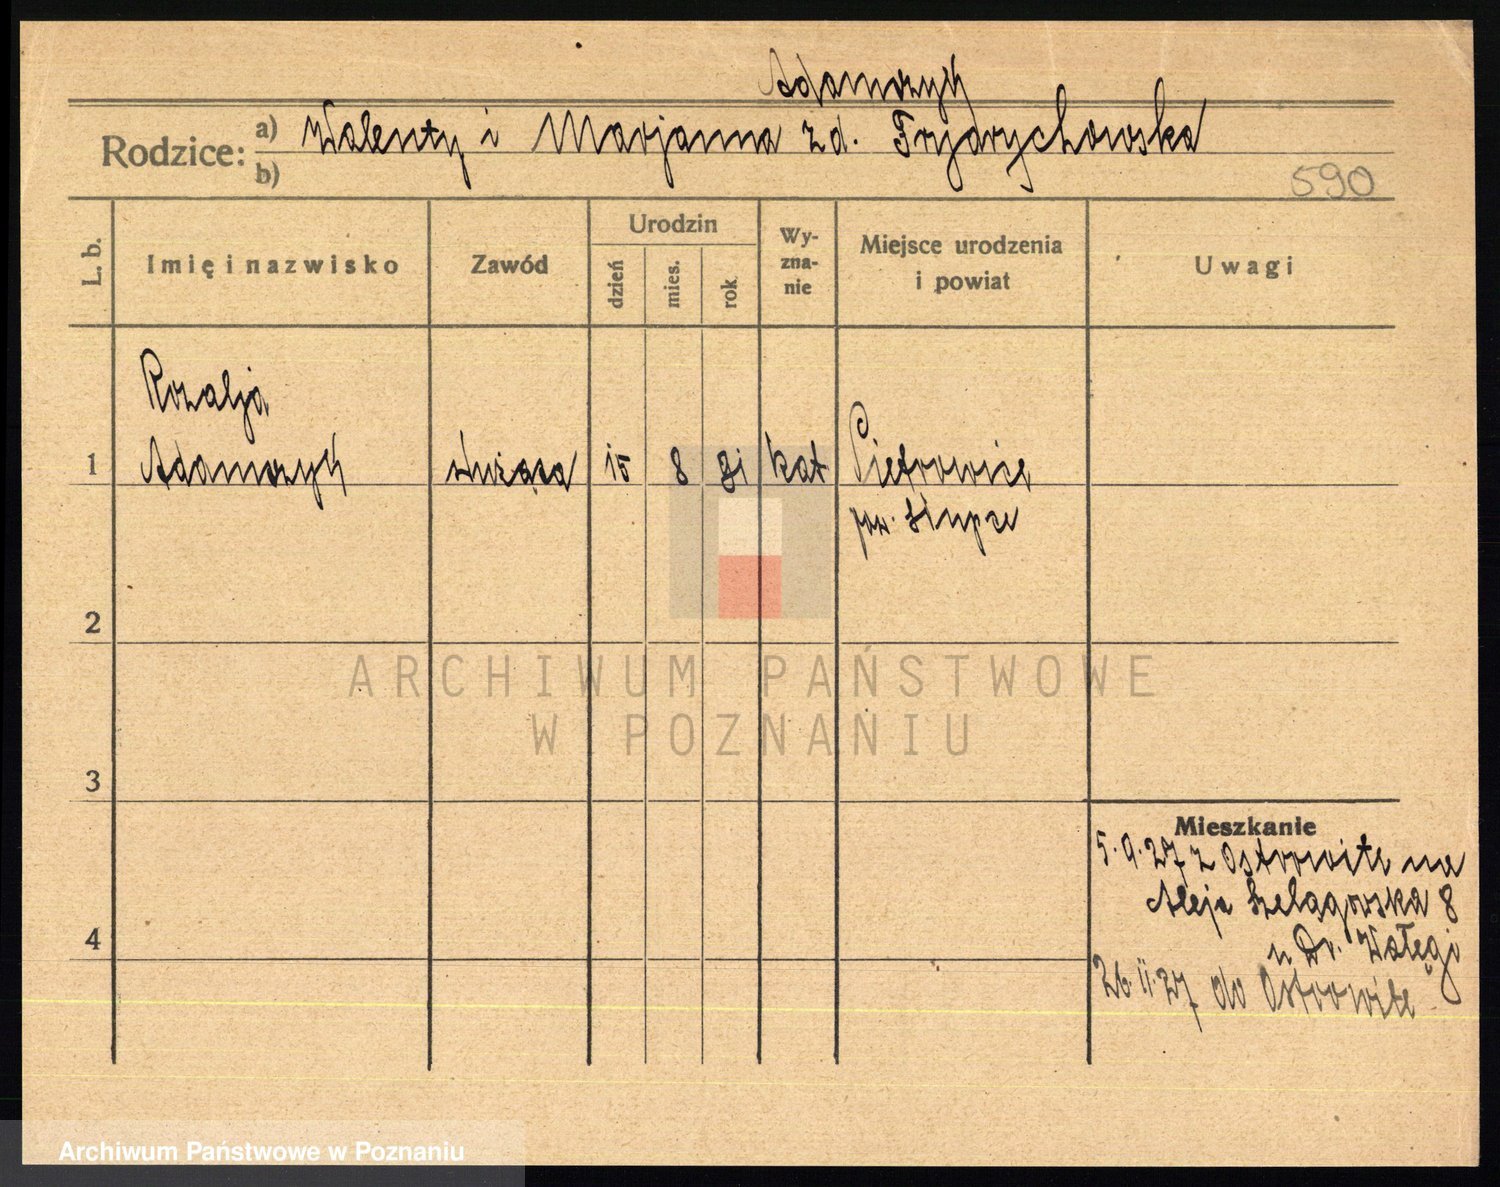 Adamczyk
Rodzice: a) Walenty i Marjanna zd. Frydrychowska
b)
590
L. b.
Imię i nazwisko
Zawód
Urodzin
dzień
mies.
rok
Wy-
zna-
nie
Miejsce urodzenia
i powiat
Uwagi
Rozalja
1 Adamczyk służąca 15 8 91 kat Pietrowice
pow. Słupce
2
ARCHIWUM PAŃSTWOWE
W POZNANIU
3
Mieszkanie
5.9.27 z Ostrowite na
Aleja Szelągowska 8
4
u Dr. Wałęgi
26.11.27 do Ostrowite
Archiwum Państwowe w Poznaniu